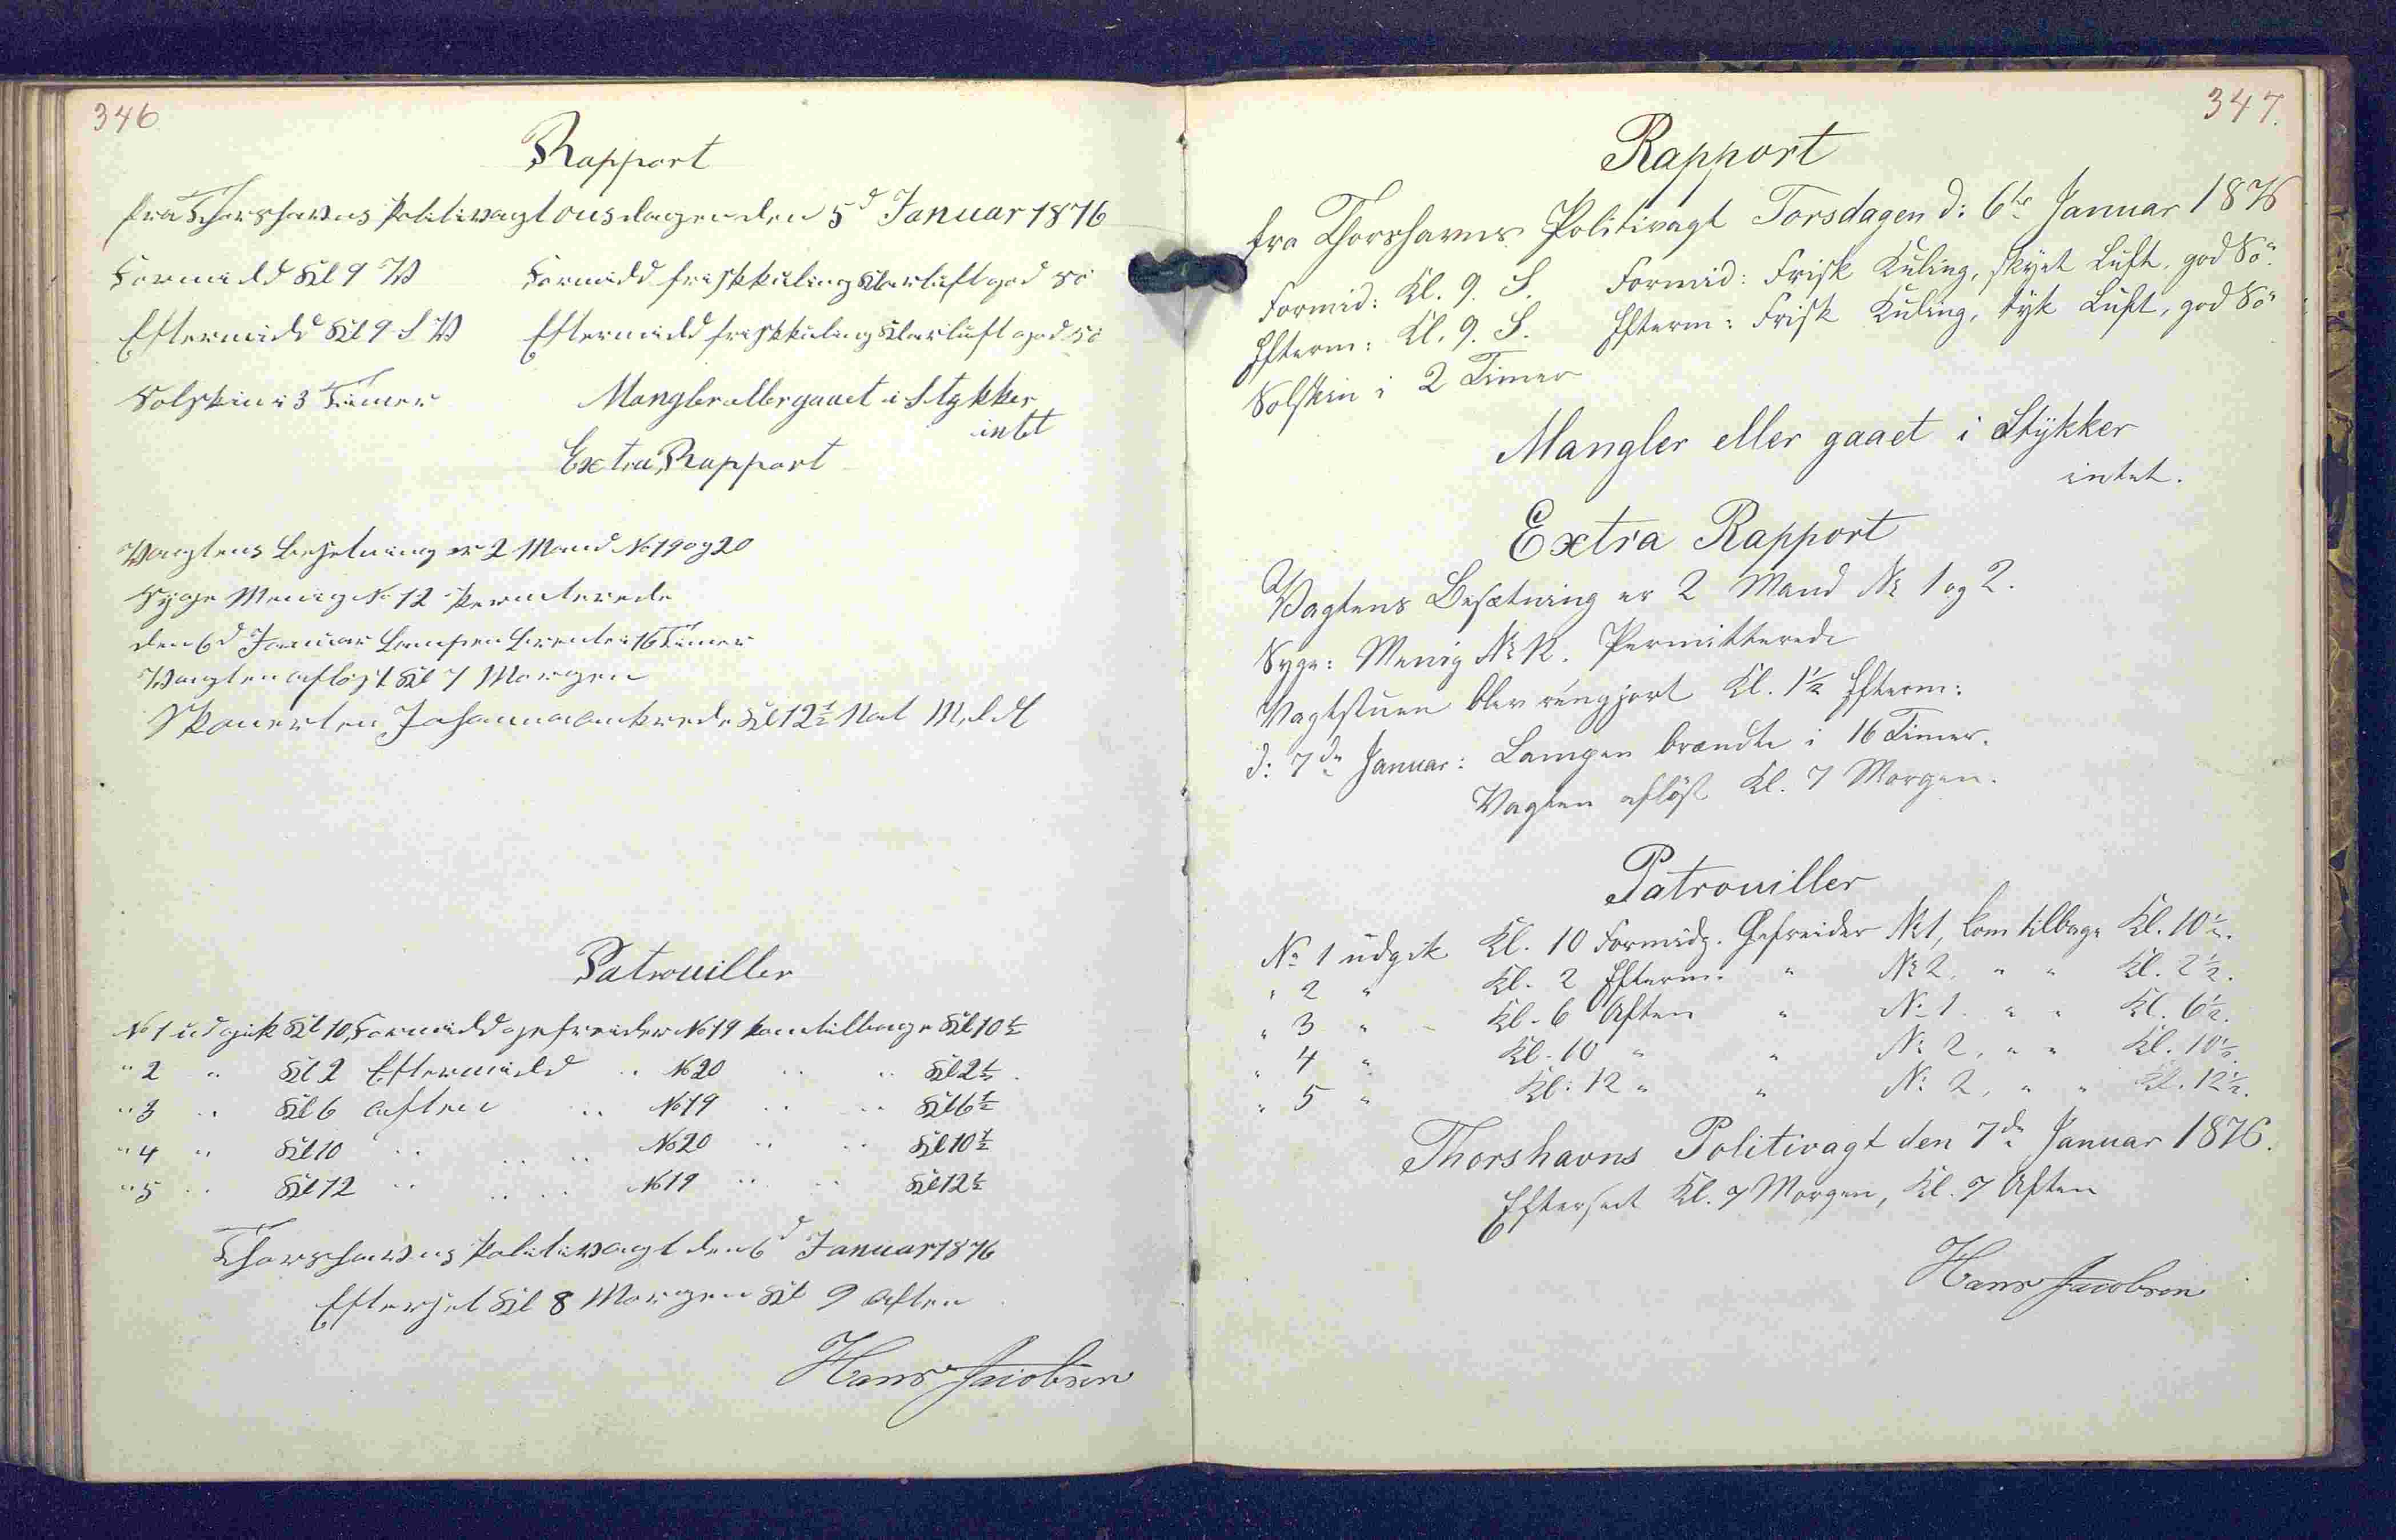 346
Rapport
fra Thorshavns Politivagt onsdagen den 5d Januar 1876
Formidd Kl 9 V Formidd frisk kuling klar luft god Sö
Eftermidd Kl 9 S V Eftermidd frisk kuling klar luft god Sö
Solskin i 3 Timer Mangler eller gaaet i Stykker
intet
Extra Rapport
Vagtens Besetning er 2 Mand No 19 og 20
Syge Menig No 12 Permterede
den 6d Januar Lampen brente i 16 Timer
Vagten aflöst Kl 7 Morgen
Skonerten Johanna ankrede Kl 12½ Nat
Patrouiller
No 1 udgik Kl 10 Formidd gefreider No 19 kom tilbage Kl 10½
" 2 " Kl 2 Eftermidd " No 20 " " Kl 2½
" 3 " Kl 6 aften " No 19 " " Kl 6½
" 4 " Kl 10 " " " No 20 " " Kl 10½
" 5 " Kl 12 " " " No 19 " " Kl 12½
Thorshavns Politivagt den 6d Januar 1876
Efterset Kl 8 Morgen Kl 9 aften
Hans Jacobsen
347.
Rapport
fra Thorshavns Politivagt Torsdagen d: 6te Januar 1876
Formid: Kl. 9. S. Formid: Frisk Kuling, skyet Luft, god Sö.
Efterm: Kl. 9. S. Efterm: Frisk Kuling, tyk Luft, god Sö
Solskin i 2 Timer
Mangler eller gaaet i Stykker
intet.
Extra Rapport
Vagtens Besætning er 2 Mand No 1 og 2.
Syge: Menig No 12. Permitterede
Vagtstuen blev rengjort Kl. 1½ Efterm:
d: 7de Januar: Lampen brændte i 16 Timer.
Vagten aflöst Kl. 7 Morgen.
Patrouiller
No 1 udgik Kl. 10 Formidg. Gefreider No 1, kom tilbage Kl. 10½.
" 2 " Kl. 2 Efterm. " No 2, " " Kl. 2½.
" 3 " Kl. 6 Aften " No 1. " " Kl. 6½.
" 4 " Kl. 10 " " No 2, " " Kl. 10½.
" 5 " Kl. 12 " " No 2, " " Kl. 12½.
Thorshavns Politivagt den 7de Januar 1876.
Efterseet Kl. 7 Morgen, Kl. 7 Aften
Hans Jacobsen